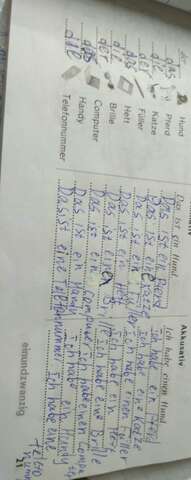 der Hund
das Pferd
die Katze
der Füller
das Heft
die Brille
der Computer
das Handy
die Telefonnummer
Das ist ein Hund.
Das ist ein
Das ist eine Katze
Das ist ein Füller
Das ist ein Heft
Das ist ein
Das ist ein Computer
Das ist ein Handy
Das ist eine Telefonnummer
Akkusativ
Ich habe einen Hund.
Ich habe ein Pferd
Ich habe eine Katze
Ich habe einen Füller
Ich habe ein Heft
Ich habe eine Brille
Ich habe einen
Ich habe ein Handy
Ich habe eine
einundzwanzig
21